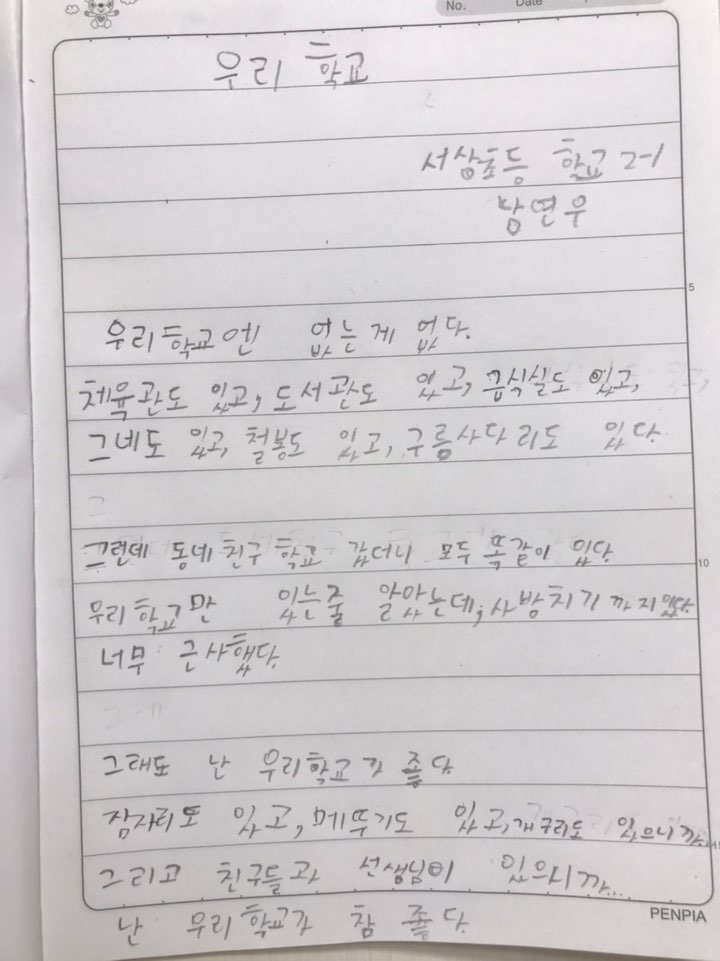 No. Date
우리 학교
서상초등 학교 2-1
남연우
5
우리학교엔 없는게 없다.
체육관도 있고, 도서관도 있고, 급식실도 있고,
그네도 있고, 철봉도 있고, 구름사다리도 있다.
그런데 동네친구 학교 갔더니 모두 똑같이 있다.
10
우리학교만 있는줄 알았는데, 사방치기까지있다.
너무 근사했다.
그래도 난 우리학교가 좋다
잠자리도 있고, 메뚜기도 있고, 개구리도 있으니까..
그리고 친구들과 선생님이 있으니까...
난 우리학교가 참 좋다.
PENPIA